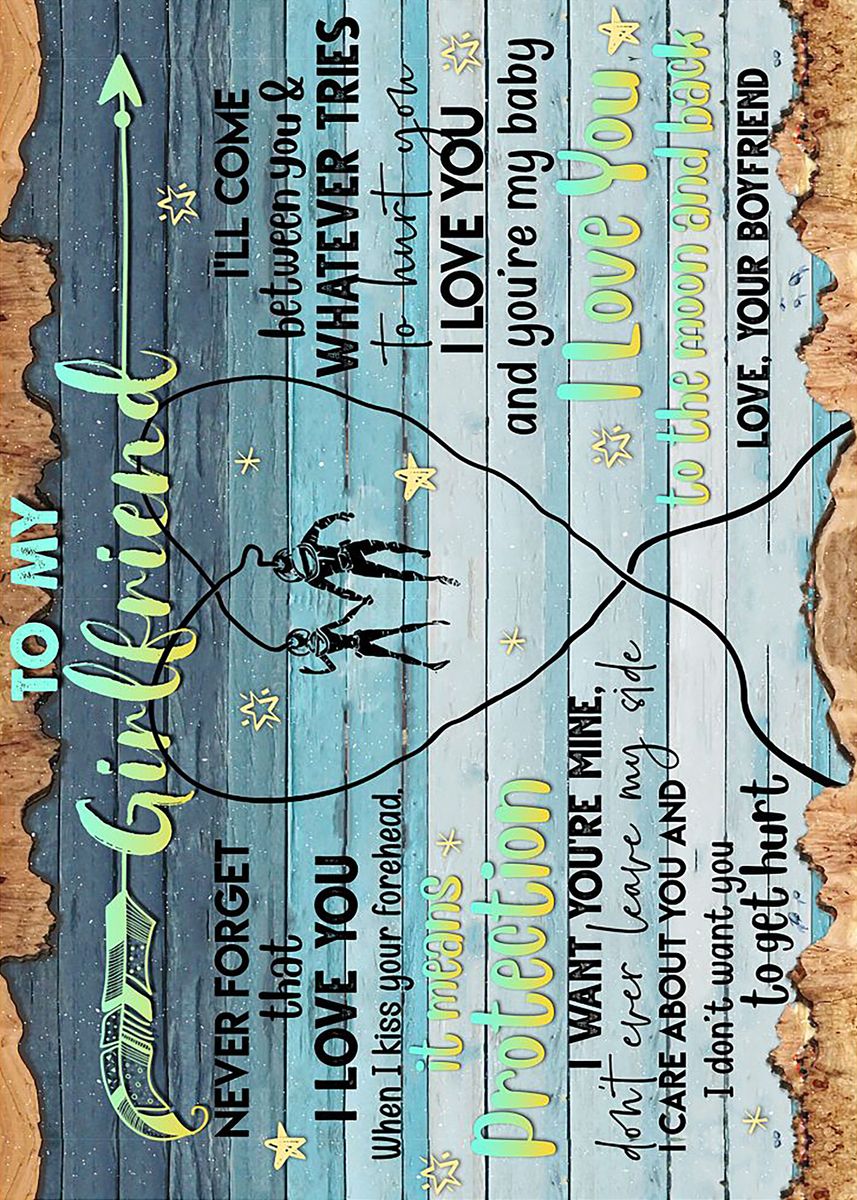 TO MY
Girlfriend
NEVER FORGET
that
I LOVE YOU
When I kiss your forehead,
it means
protection
I WANT YOU'RE MINE,
don't ever leave my side
I CARE ABOUT YOU AND
I don't want you
to get hurt
I'LL COME
between you &
WHATEVER TRIES
to hurt you
I LOVE YOU
and you're my baby
I Love You
to the moon and back
LOVE, YOUR BOYFRIEND